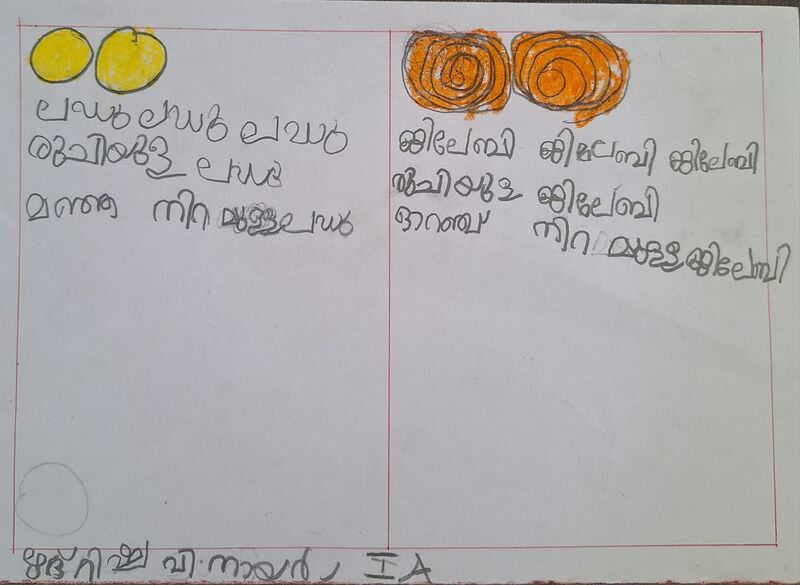 ലഡു ലഡു ലഡു
രുചിയുള്ള ലഡു
മഞ്ഞ നിറ മുള്ള ലഡു
ജിലേബി ജിലേബി ജിലേബി
രുചിയുള്ള ജിലേബി
ഓറഞ്ച് നിറ മുള്ള ജിലേബി
വി. നായർ, I A